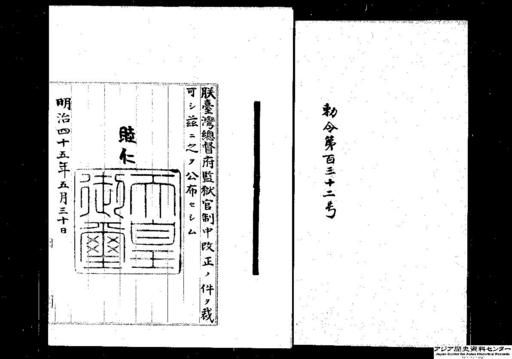 勅令第百三十二号
朕臺灣總督府監獄官制中改正ノ件ヲ裁
可シ茲ニ之ヲ公布セシム
睦仁
天皇御璽
明治四十五年五月三十日
アジア歴史資料センター
Japan Center for Asian Historical Records